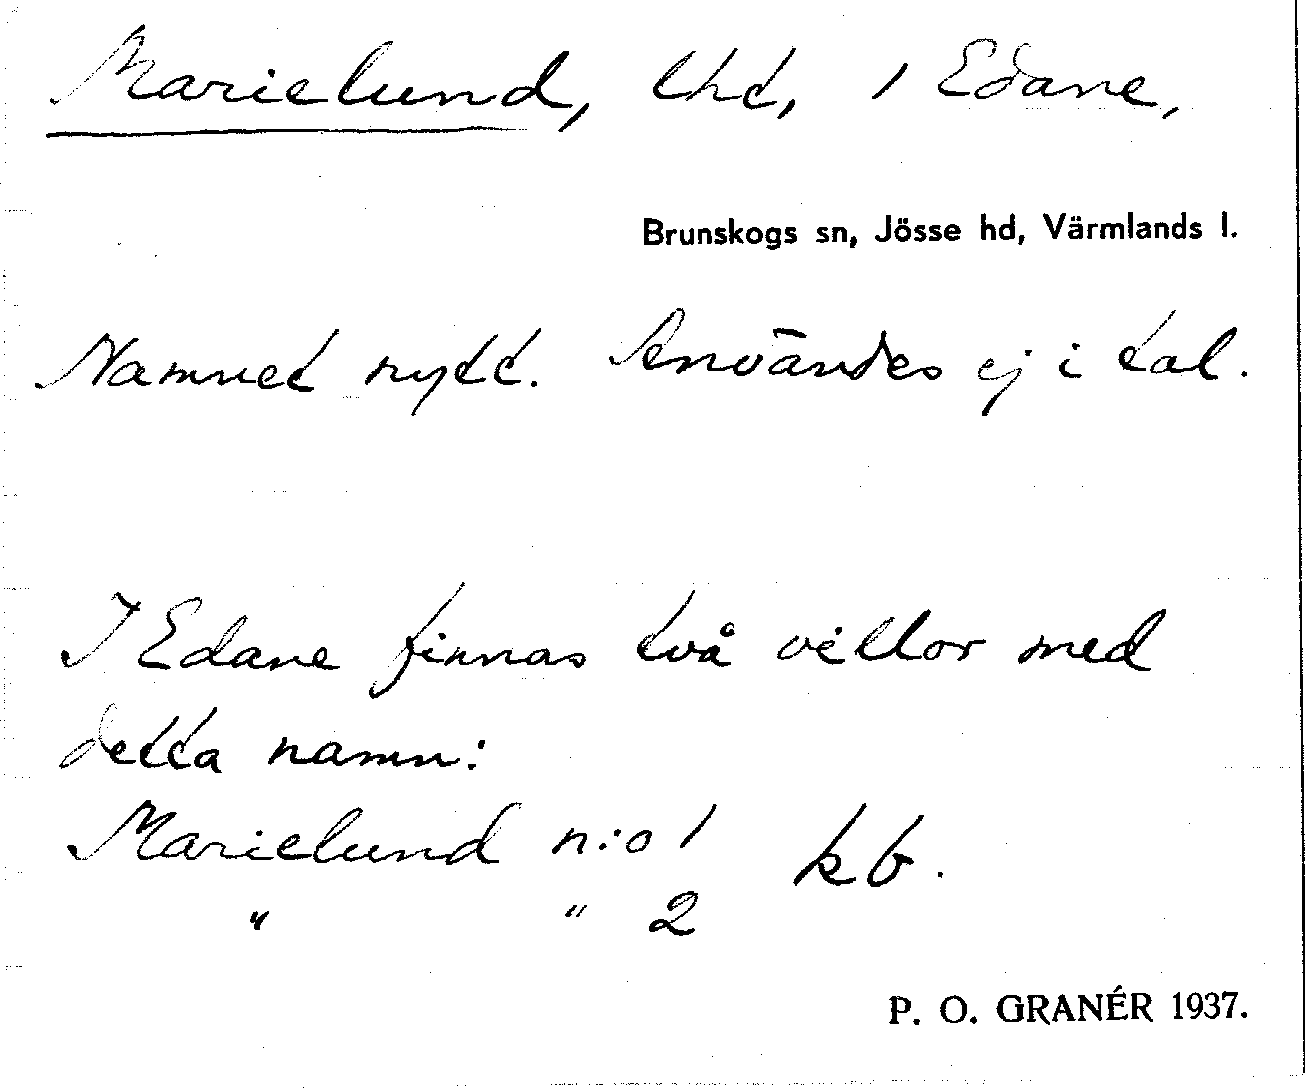 Marielund, lhd, 1 Edane,
Brunskogs sn, Jösse hd, Värmlands l.
Namnet nytt. Användes ej i tal.
I Edane finnas två villor med
detta namn:
Marielund n:o 1 kb.
" " 2
P. O. GRANÉR 1937.